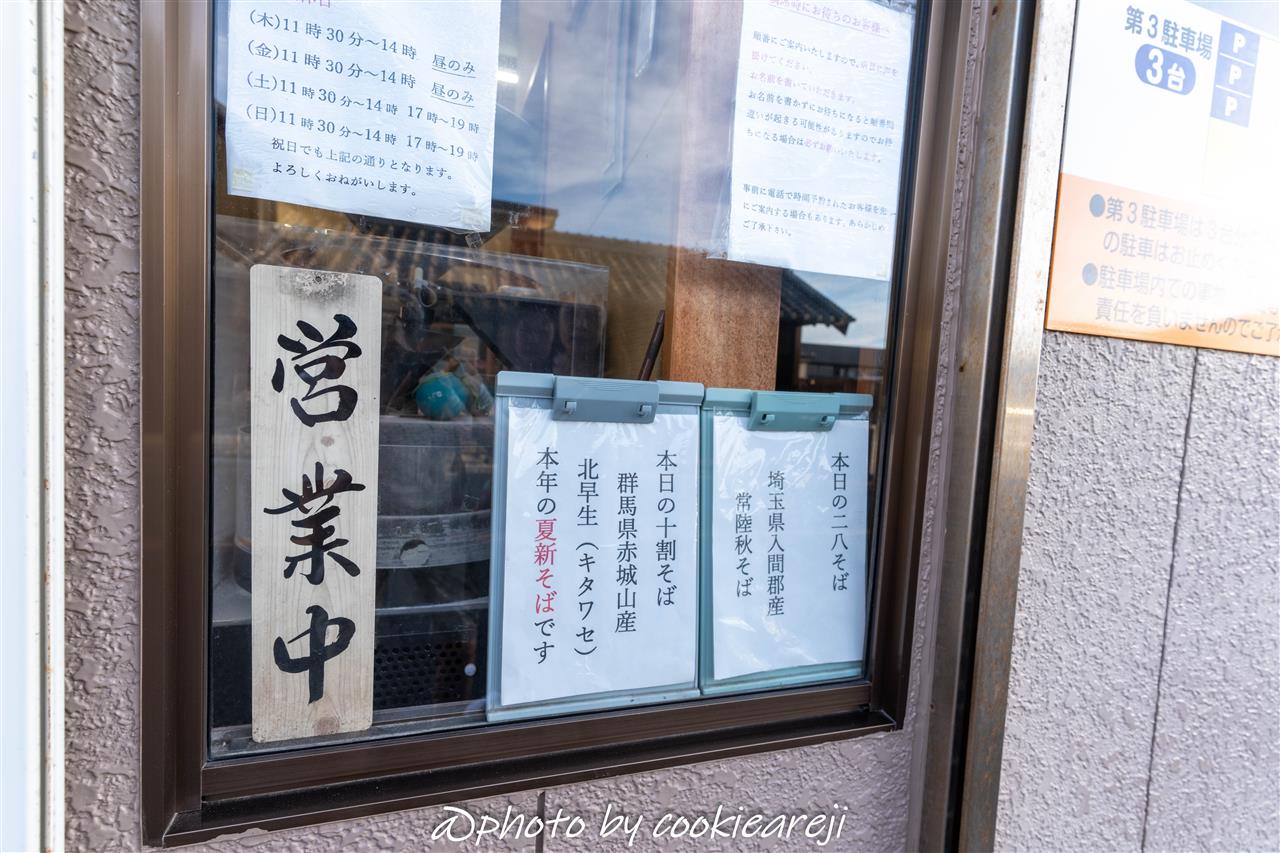 (木)11時30分〜14時 昼のみ
(金)11時30分〜14時 昼のみ
(土)11時30分〜14時 17時〜19時
(日)11時30分〜14時 17時〜19時
祝日でも上記の通りとなります。
よろしくおねがいします。
にお待ちのお客様へ
順番にご案内いたしますので、
掛けてください
お名前を書いていただきます。
お名前を書かずにお待ちになると順番
違いが起きる可能性がありますのでお待
ちになる場合は必ずお願いいたします。
事前に電話で時間予約されたお客様を先
にご案内する場合もあります。あらかじめ
ご了承下さい。
第3駐車場
3台
P
P
P
●第3駐車場は3台
の駐車はお止め
●駐車場内での事
責任を負いませんのでご了
営業中
本日の十割そば
群馬県赤城山産
北早生（キタワセ）
本年の夏新そばです
本日の二八そば
埼玉県入間郡産
常陸秋そば
@photo by cookieareji